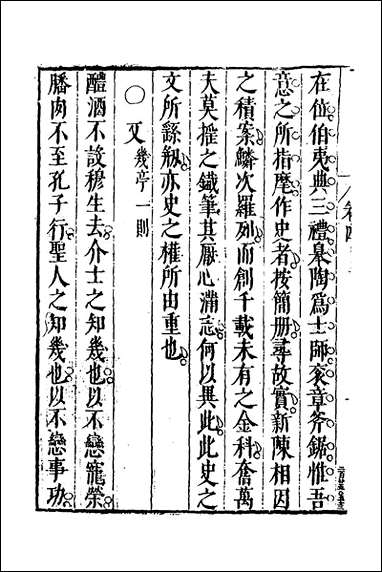 在位伯夷典三禮皋陶爲士師袞章斧鋸惟吾
意之所指麾作史者按簡册尋故實新陳相因
之積案麟次羅列而創千載未有之金科奮萬
夫莫摧之鐵筆其厭心滿志何以異此此史之
文所繇剏亦史之權所由重也
〇又幾亭一則
醴酒不設穆生去介士之知幾也以不戀寵榮
膰肉不至孔子行聖人之知幾也以不戀事功